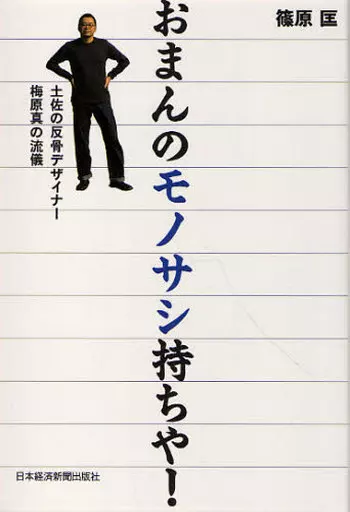 篠原 匡
おまんのモノサシ持ちや!
土佐の反骨デザイナー
梅原真の流儀
日本経済新聞出版社